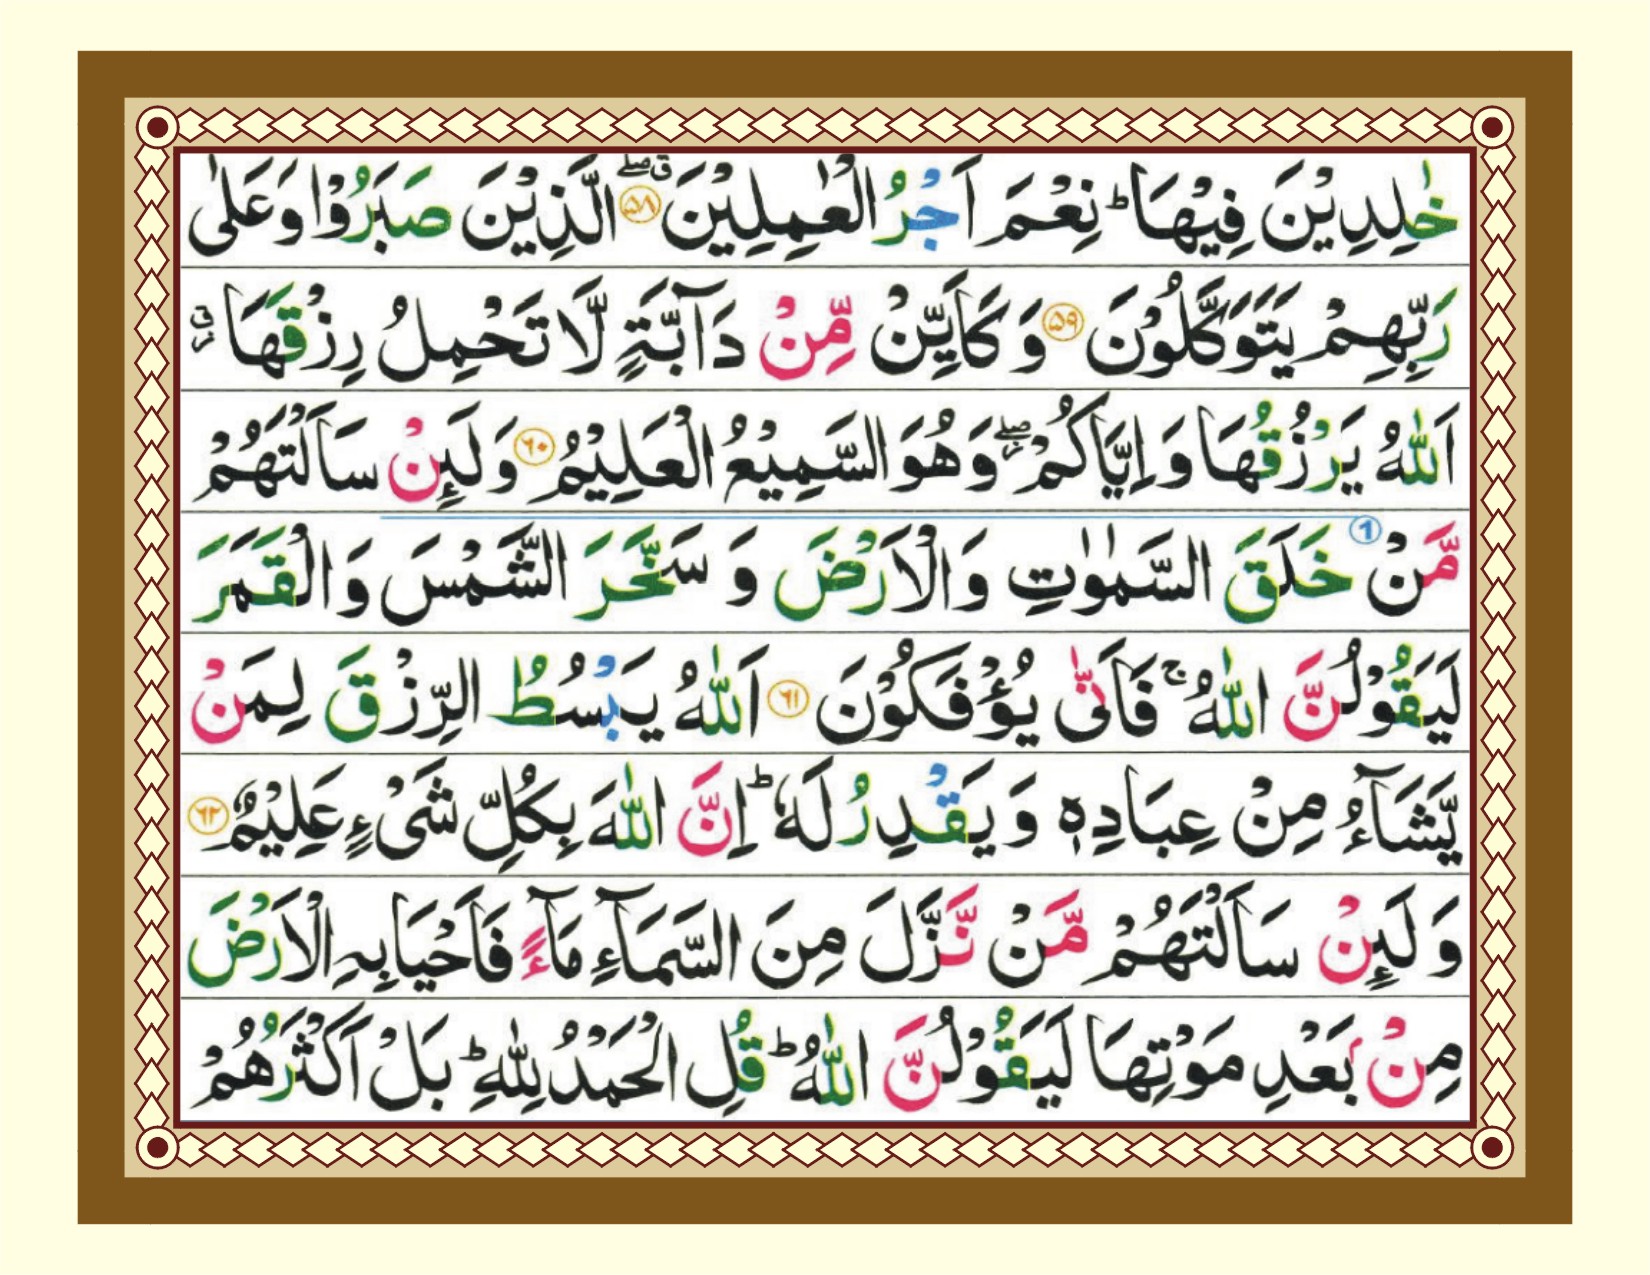 خٰلِدِيْنَ فِيْهَا ؕ نِعْمَ اَجْرُ الْعٰمِلِيْنَ ۖۗ ﴿۵۸﴾ الَّذِيْنَ صَبَرُوْا وَعَلٰى
رَبِّهِمْ يَتَوَكَّلُوْنَ ﴿۵۹﴾ وَكَاَيِّنْ مِّنْ دَآبَّةٍ لَّا تَحْمِلُ رِزْقَهَا ۗۖ
اَللّٰهُ يَرْزُقُهَا وَاِيَّاكُمْ ۖ وَهُوَ السَّمِيْعُ الْعَلِيْمُ ﴿۶۰﴾ وَلَىِٕنْ سَاَلْتَهُمْ
مَّنْ ① خَلَقَ السَّمٰوٰتِ وَالْاَرْضَ وَ سَخَّرَ الشَّمْسَ وَالْقَمَرَ
لَيَقُوْلُنَّ اللّٰهُ ۚ فَاَنّٰى يُؤْفَكُوْنَ ﴿۶۱﴾ اَللّٰهُ يَبْسُطُ الرِّزْقَ لِمَنْ
يَّشَآءُ مِنْ عِبَادِهٖ وَيَقْدِرُ لَهٗ ؕ اِنَّ اللّٰهَ بِكُلِّ شَىْءٍ عَلِيْمٌ ﴿۶۲﴾
وَلَىِٕنْ سَاَلْتَهُمْ مَّنْ نَّزَّلَ مِنَ السَّمَآءِ مَآءً فَاَحْيَا بِهِ الْاَرْضَ
مِنْۢ بَعْدِ مَوْتِهَا لَيَقُوْلُنَّ اللّٰهُ ؕ قُلِ الْحَمْدُ لِلّٰهِ ؕ بَلْ اَكْثَرُهُمْ